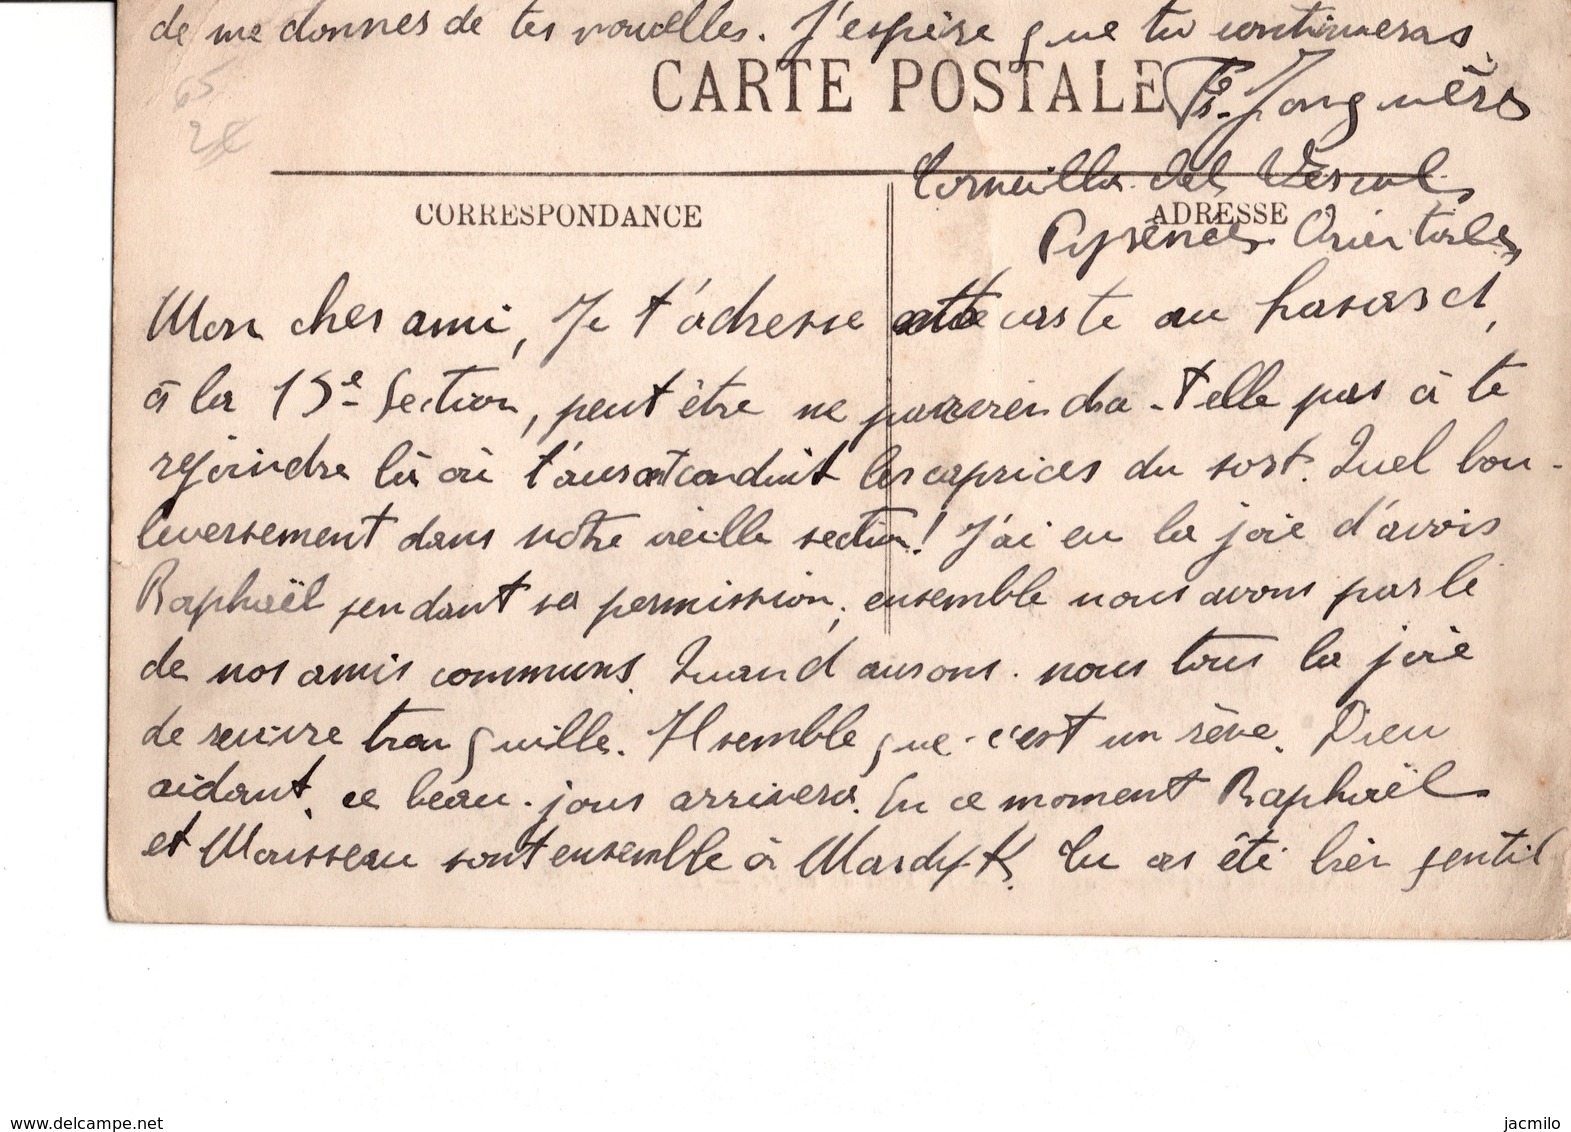 de me donner de tes nouvelles. J'espère que tu continueras
CARTE POSTALE
Jonquères
65
2€
Corneilla del Vercol
Pyrénées Orientales
CORRESPONDANCE
ADRESSE
Mon cher ami, Je t'adresse cette carte au hasard,
à la 15e Section, peut être ne parviendra-t elle pas à te
rejoindre là où t'auront conduit les caprices du sort. Quel bou-
leversement dans notre vieille section! J'ai eu la joie d'avoir
Raphaël pendant sa permission, ensemble nous avons parlé
de nos amis communs. Quand aurons nous tous la joie
de revivre tranquille. Il semble que c'est un rêve. Dieu
aidant, ce beau jour arrivera. En ce moment Raphaël
et Moisseau sont ensemble à Mardyk. Tu as été bien gentil
www.delcampe.net
jacmilo